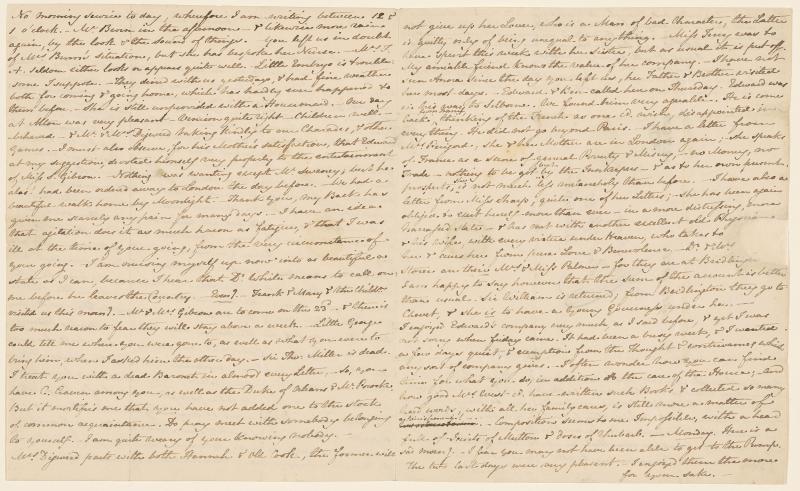 No morning service to day, wherefore I am writing between 12 &
1 o'clock. — Mr. Benn in the afternoon — & likewise more rain
again, by the look & the sound of things. You left us in doubt
of Mrs. Benn's situation, but she has bespoke her Nurse. — Mrs. F.
A. seldom either looks or appears quite well. Little Embryo is trouble-
some I suppose. — They dined with us yesterday, & had fine weather
both for coming & going home, which has hardly ever happened to
them before. She is still unprovided with a Housemaid. — Our day
at Alton was very pleasant — Venison quite right — Children well-
behaved — & Mr. & Mrs. Digweed taking kindly to our Charades, & other
Games. — I must also observe, for his Mother's satisfaction, that Edward
at my suggestion, devoted himself very properly to the entertainment
of Miss S. Gibson. — Nothing was wanting except Mr. Sweney; but he
alas! had been ordered away to London the day before. — We had a
beautiful walk home by Moonlight. Thank you, my Back has
given me scarcely any pain for many days. — I have an idea
that agitation does it as much harm as fatigue, & that I was
ill at the time of your going, from the very circumstance of
your going. — I am nursing myself up now into as beautiful a
state as I can, because I hear that Dr. White means to call on
me before he leaves the Country. — Eveng. — Frank & Mary & the Childn.
visited us this morng. — Mr. & Mrs. Gibson are to come on the 23d. — & there is
too much reason to fear they will stay above a week. — Little George
could tell me where you were gone to, as well as what you were to
bring him, when I asked him the other day. — Sir Tho: Miller is dead.
I treat you with a dead Baronet in almost every Letter. — So, you
have C. Craven among you, as well as the Duke of Orleans & Mr. Pocock.
But it mortifies me that you have not added one to the stock
of common acquaintance. Do pray meet with somebody belonging
to yourself. — I am quite weary of your knowing nobody. —
Mrs. Digweed parts with both Hannah & old Cook, the former will
not give up her Lover, who is a Man of bad Character, the Latter
is guilty only of being unequal to anything. — Miss Terry was to
have spent this week with her Sister, but as usual it is put off.
My amiable friend knows the value of her company. — I have not
seen Anna since the day you left us, her Father & Brother visited
her most days. — Edward & Ben called here on Thursday. Edward was
in his way to Selborne. We found him very agreable. He is come
back from France, thinking of the French as one cd. wish, disappointed in
every thing. He did not go beyond Paris. — I have a letter from
Mrs. Perigord, she & her Mother are in London again; — she speaks
of France as a scene of general Poverty & Misery, — no Money, no
Trade — nothing to be got but by the Innkeepers — & as to her own present
prospects, she is not much less melancholy than before. — I have also a
letter from Miss Sharp, quite one of her Letters; — she has been again
obliged to exert herself more than ever — in a more distressing, more
harrassed state — & has met with another excellent old Physician
& his Wife, with every virtue under Heaven, who takes to
her & cures her from pure Love & Benevolence. — Dr. & Mrs.
Storer are their Mrs. & Miss Palmer — for they are at Bridlington.
I am happy to say however that the sum of the account is better
than usual. Sir William is returned; from Bridlington they go to
Chevet, & she is to have a Young Governess under her. —
I enjoyed Edward's company very much, as I said before, & yet I was
not sorry when friday came. It had been a busy week, & I wanted
a few days quiet, & exemption from the Thought & contrivances which
any sort of company gives. — I often wonder how you can find
time for what you do, in addition to the care of the House; — And
how good Mrs. West cd. have written such Books & collected so many
hard words, with all her family cares, is still more a matter of
astonishment! Composition seems to me Impossible, with a head
full of Joints of Mutton & doses of rhubarb. — Monday. Here is a
sad morng. — I fear you may not have been able to get to the Pump.
The two last days were very pleasant. — I enjoyed them the more
for your sake. —